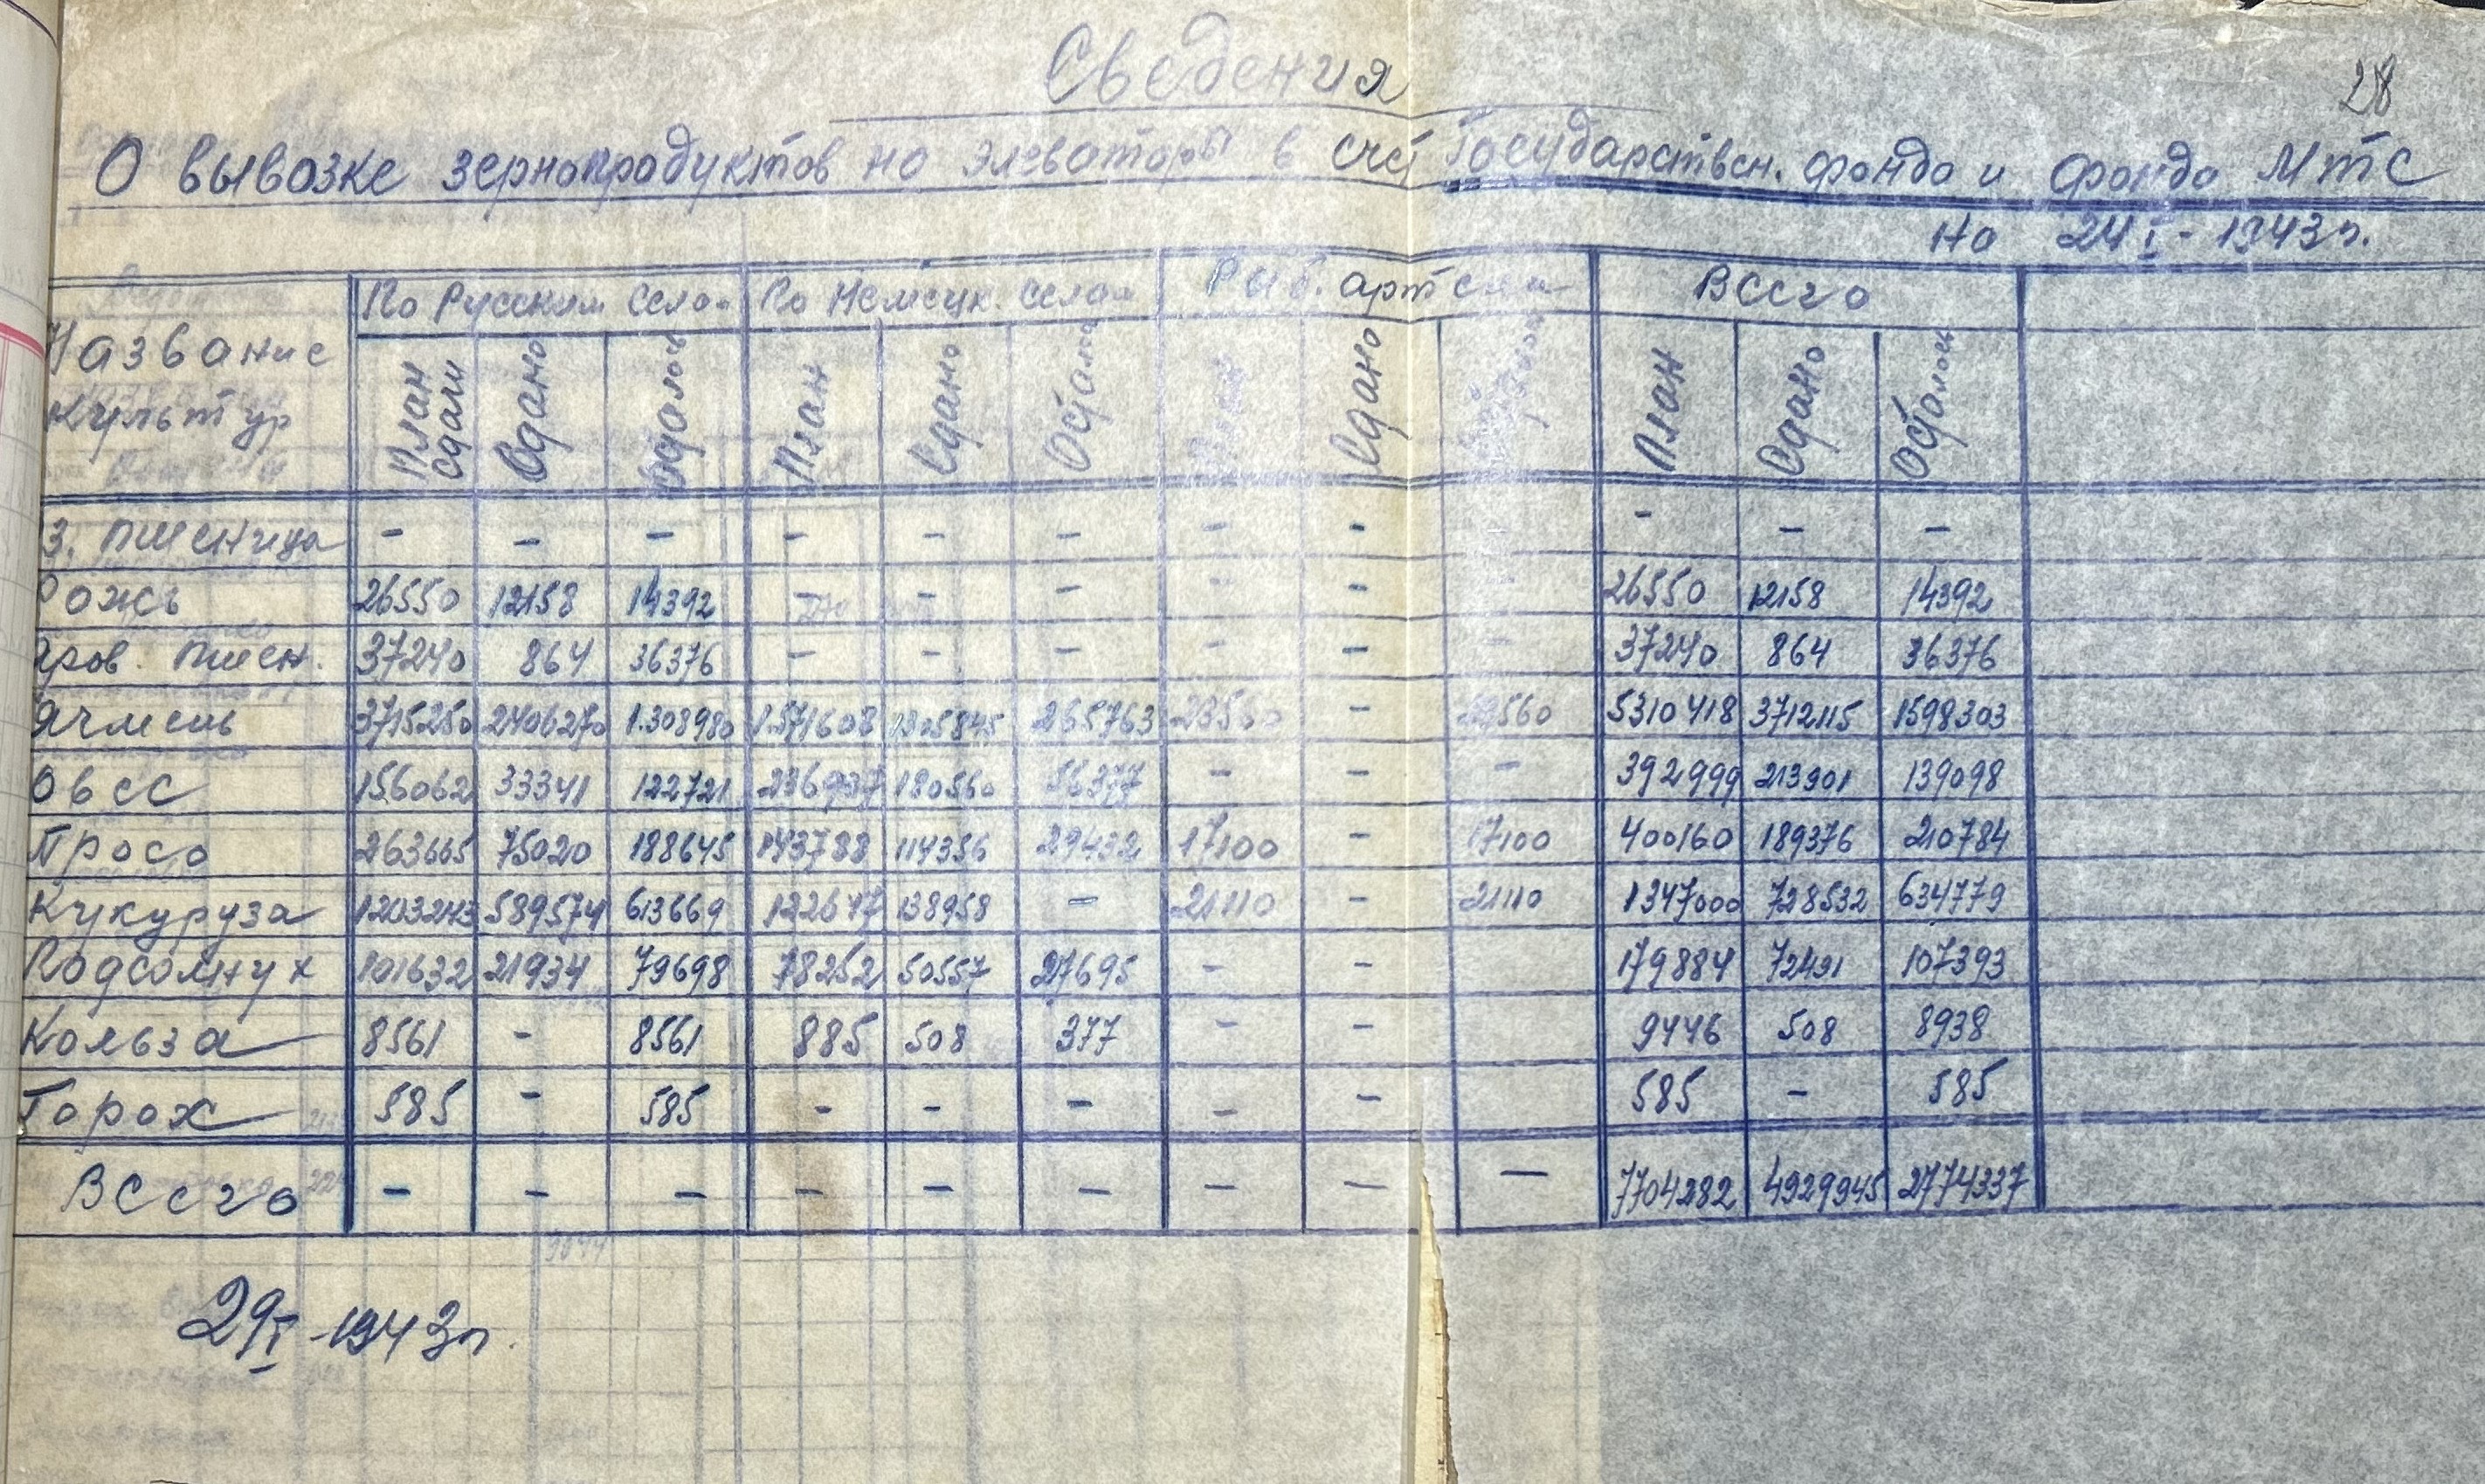 28
Сведения
О вывозке зернопродуктов на элеваторы в счет Государствен. фонда и фонда МТС
на 24 I - 1943 г.
Название культур | По Русским селам | По Немецк. селам | Рыб. артели | Всего
План сдачи | Сдано | Осталось | План | Сдано | Осталось | План | Сдано | План | Сдано | Осталось
Оз. пшеница - - - - - - - - - - - -
Рожь 26550 12158 14392 - - - - - - 26550 12158 14392
Яров. пшен. 37240 864 36376 - - - - - - 37240 864 36376
Ячмень 3715250 2406270 1.308980 1.571608 1305845 265763 23560 - 23560 5310418 3712115 1598303
Овес 156062 33341 122721 236937 180560 56377 - - - 392999 213901 139098
Просо 263665 75020 188645 143788 114356 29432 17100 - 17100 400160 189376 210784
Кукуруза 1203243 589574 613669 122647 138958 - 21110 - 21110 1347000 728532 634779
Подсолнух 101632 21934 79698 78252 50557 27695 - - 179884 72491 107393
Кольза 8561 - 8561 885 508 377 - - 9446 508 8938
Горох 585 - 585 - - - - - 585 - 585
Всего - - - - - - - - - 7704282 4929945 2774337
29 I - 1943 г.